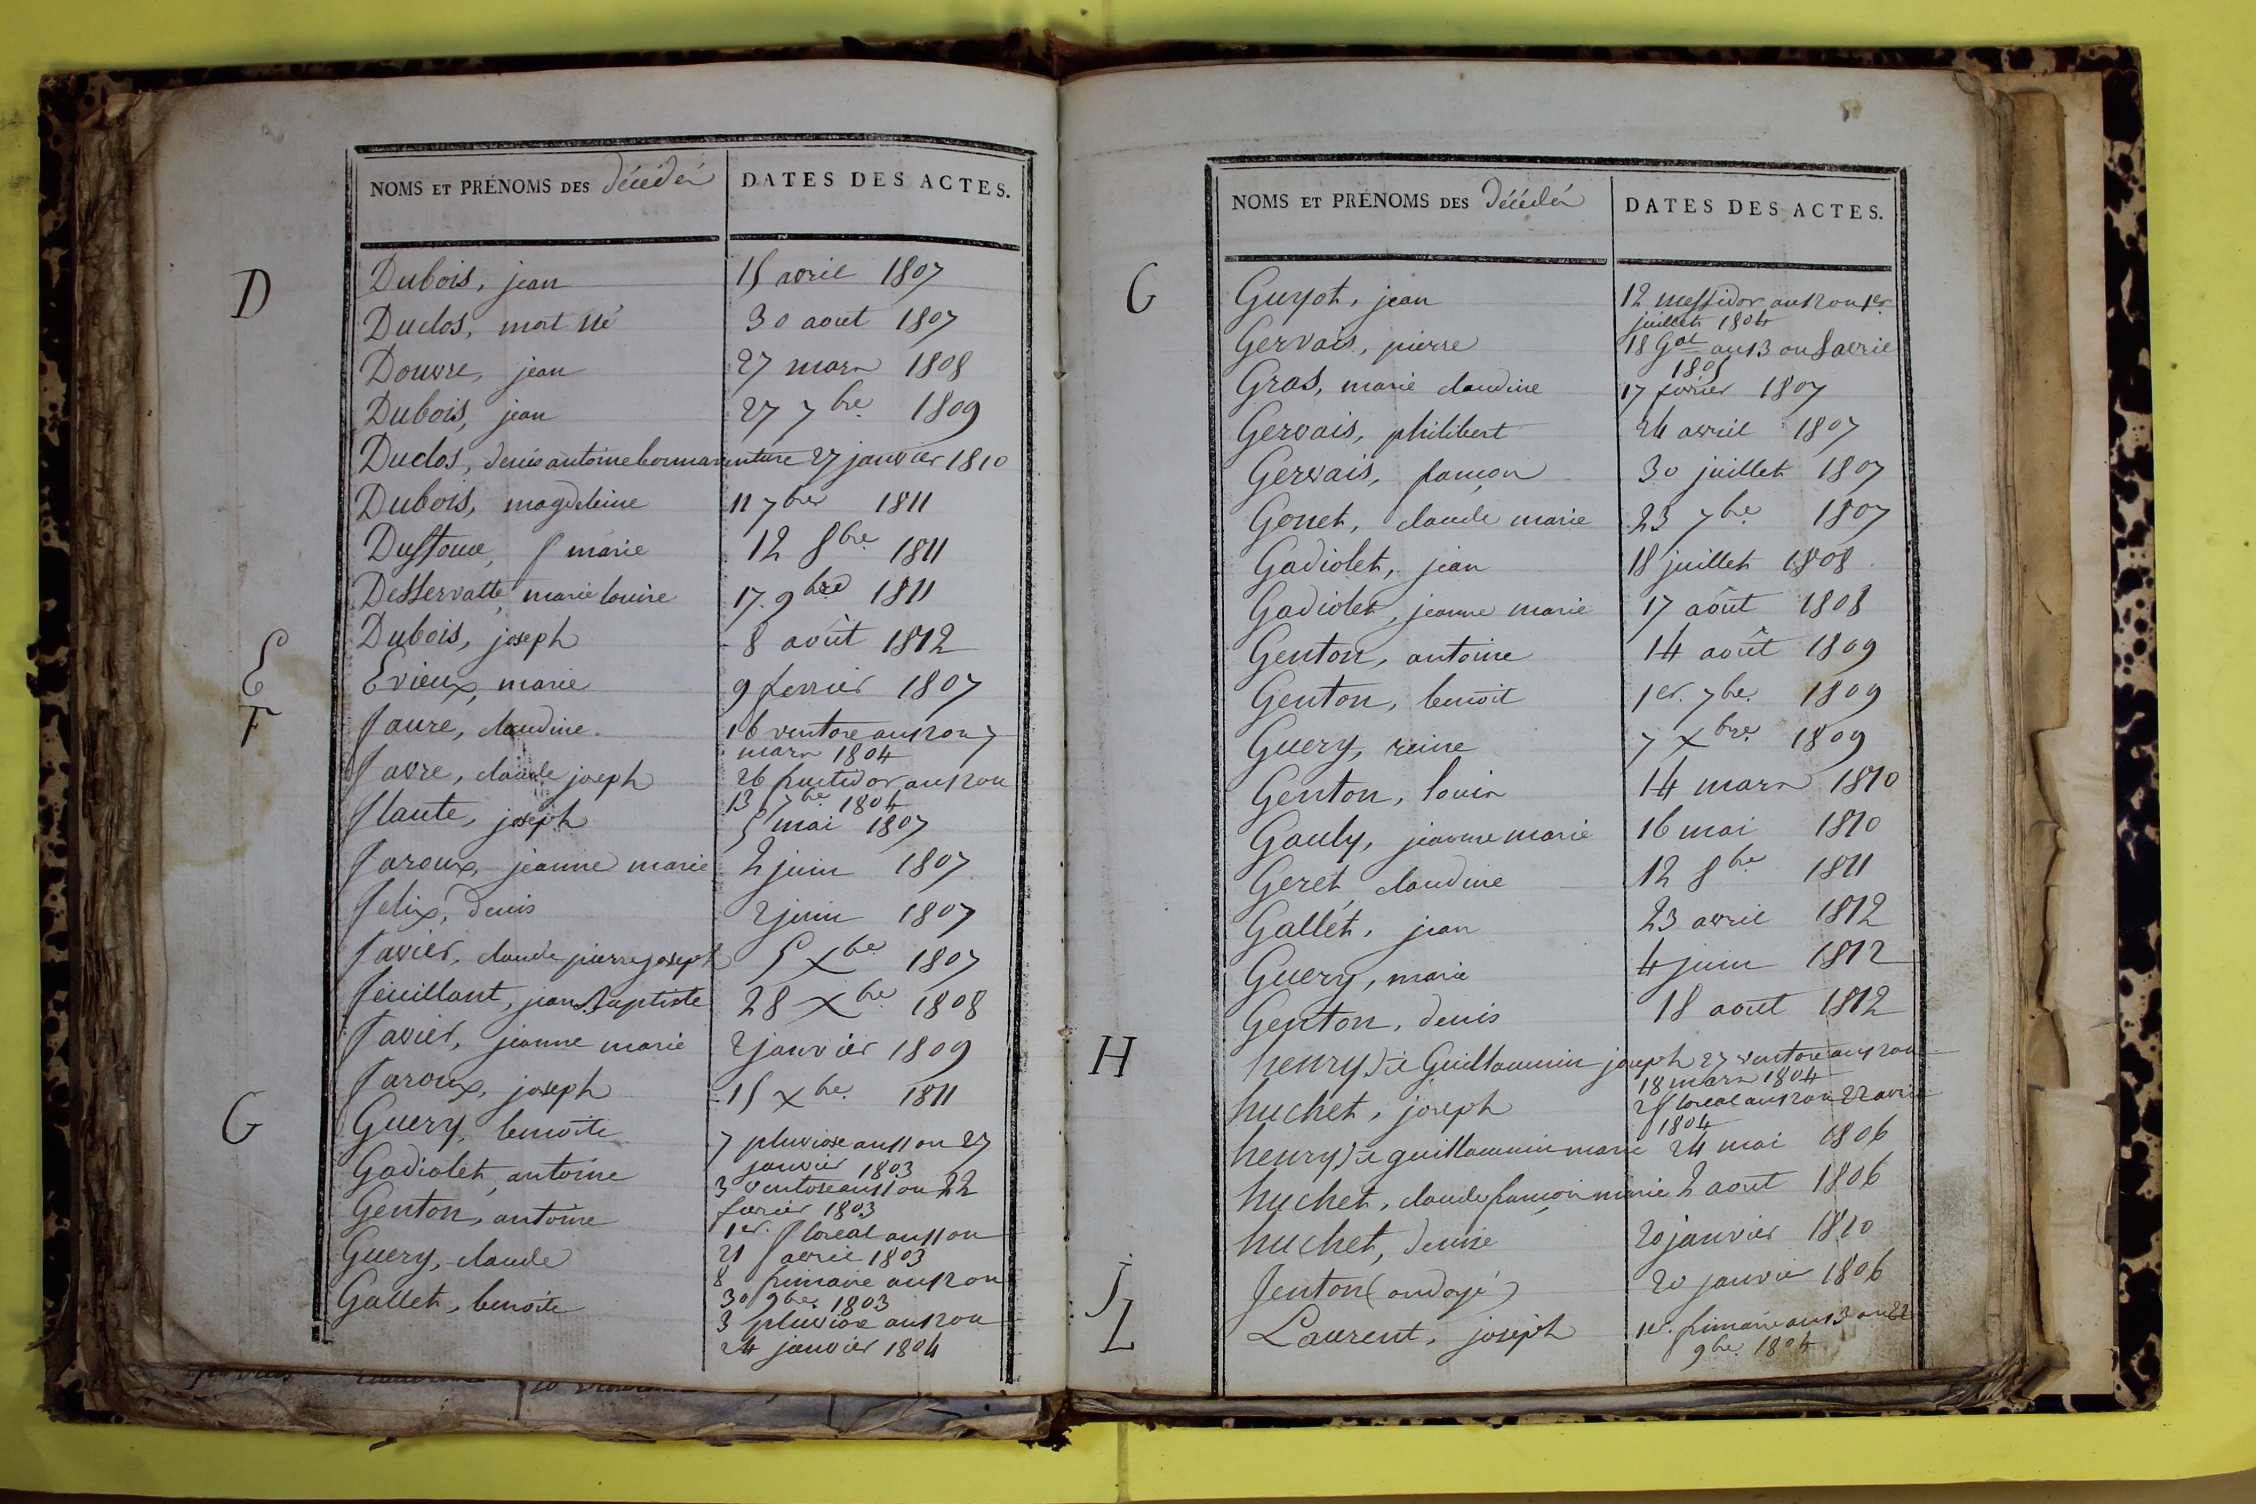 NOMS ET PRÉNOMS DES décédés DATES DES ACTES.
D
Dubois, jean 15 avril 1807
Duclos, mort né 30 aout 1807
Douvre, jean 27 mars 1808
Dubois, jean 27 7bre 1809
Duclos, denis antoine bonnaventure 27 janvier 1810
Dubois, magdeleine 11 7bre 1811
marie 12 8bre 1811
Desservatte, marie louise 17. 9bre 1811
Dubois, joseph 8 août 1812
E
Evieux, marie 9 fevrier 1807
F
faure, claudine 16 ventose an 12 ou 7
mars 1804
favre, claude joseph 26 fructidor an 12 ou
13 7bre 1804
flaute, joseph 5 mai 1807
faroux, jeanne marie 2 juin 1807
felix, denis 2 juin 1807
favier, claude pierre joseph 5 Xbre 1807
feuillant, jean Baptiste 28 Xbre 1808
favier, jeanne marie 2 janvier 1809
faroux, joseph 15 Xbre 1811
G
Guery, benoite 7 pluviose an 11 ou 27
janvier 1803
Gadiolet, antoine 3 ventose an 11 ou 22
fevrier 1803
Genton, antoine 1er. floreal an 11 ou
21 avril 1803
Guery, claude 8 frimaire an 12 ou
30 9bre 1803
Gallet, benoite 3 pluviose an 12 ou
24 janvier 1804
NOMS ET PRÉNOMS DES décédés DATES DES ACTES.
G
Guyot, jean 12 messidor an 12 ou 1er
juillet 1804
Gervais, pierre 18 Gal an 13 ou 8 avril
1805
Gras, marie claudine 17 fevrier 1807
Gervais, philibert 24 avril 1807
Gervais, françois 30 juillet 1807
Gonet, claude marie 23 7bre 1807
Gadiolet, jean 18 juillet 1808
Gadiolet, jeanne marie 17 août 1808
Genton, antoine 14 août 1809
Genton, benoit 1er. 7bre. 1809
Guery, reine 7 Xbre. 1809
Genton, louis 14 mars 1810
Gauly, jeanne marie 16 mai 1810
Geret claudine 12 8bre 1811
Gallet, jean 23 avril 1812
Guery, marie 4 juin 1812
Genton, denis 18 aout 1812
H
henry) Guillaumin joseph 27 ventose an 12 ou
18 mars 1804
huchet, joseph 2 floreal an 12 ou 22 avril
1804
henry) guillaumin marie 24 mai 1806
huchet, claude françois marie 2 aout 1806
huchet, denise 20 janvier 1810
J
Jenton (ondoyé) 20 janvier 1806
L
Laurent, joseph 1er. frimaire an 13 ou 22
9bre. 1804